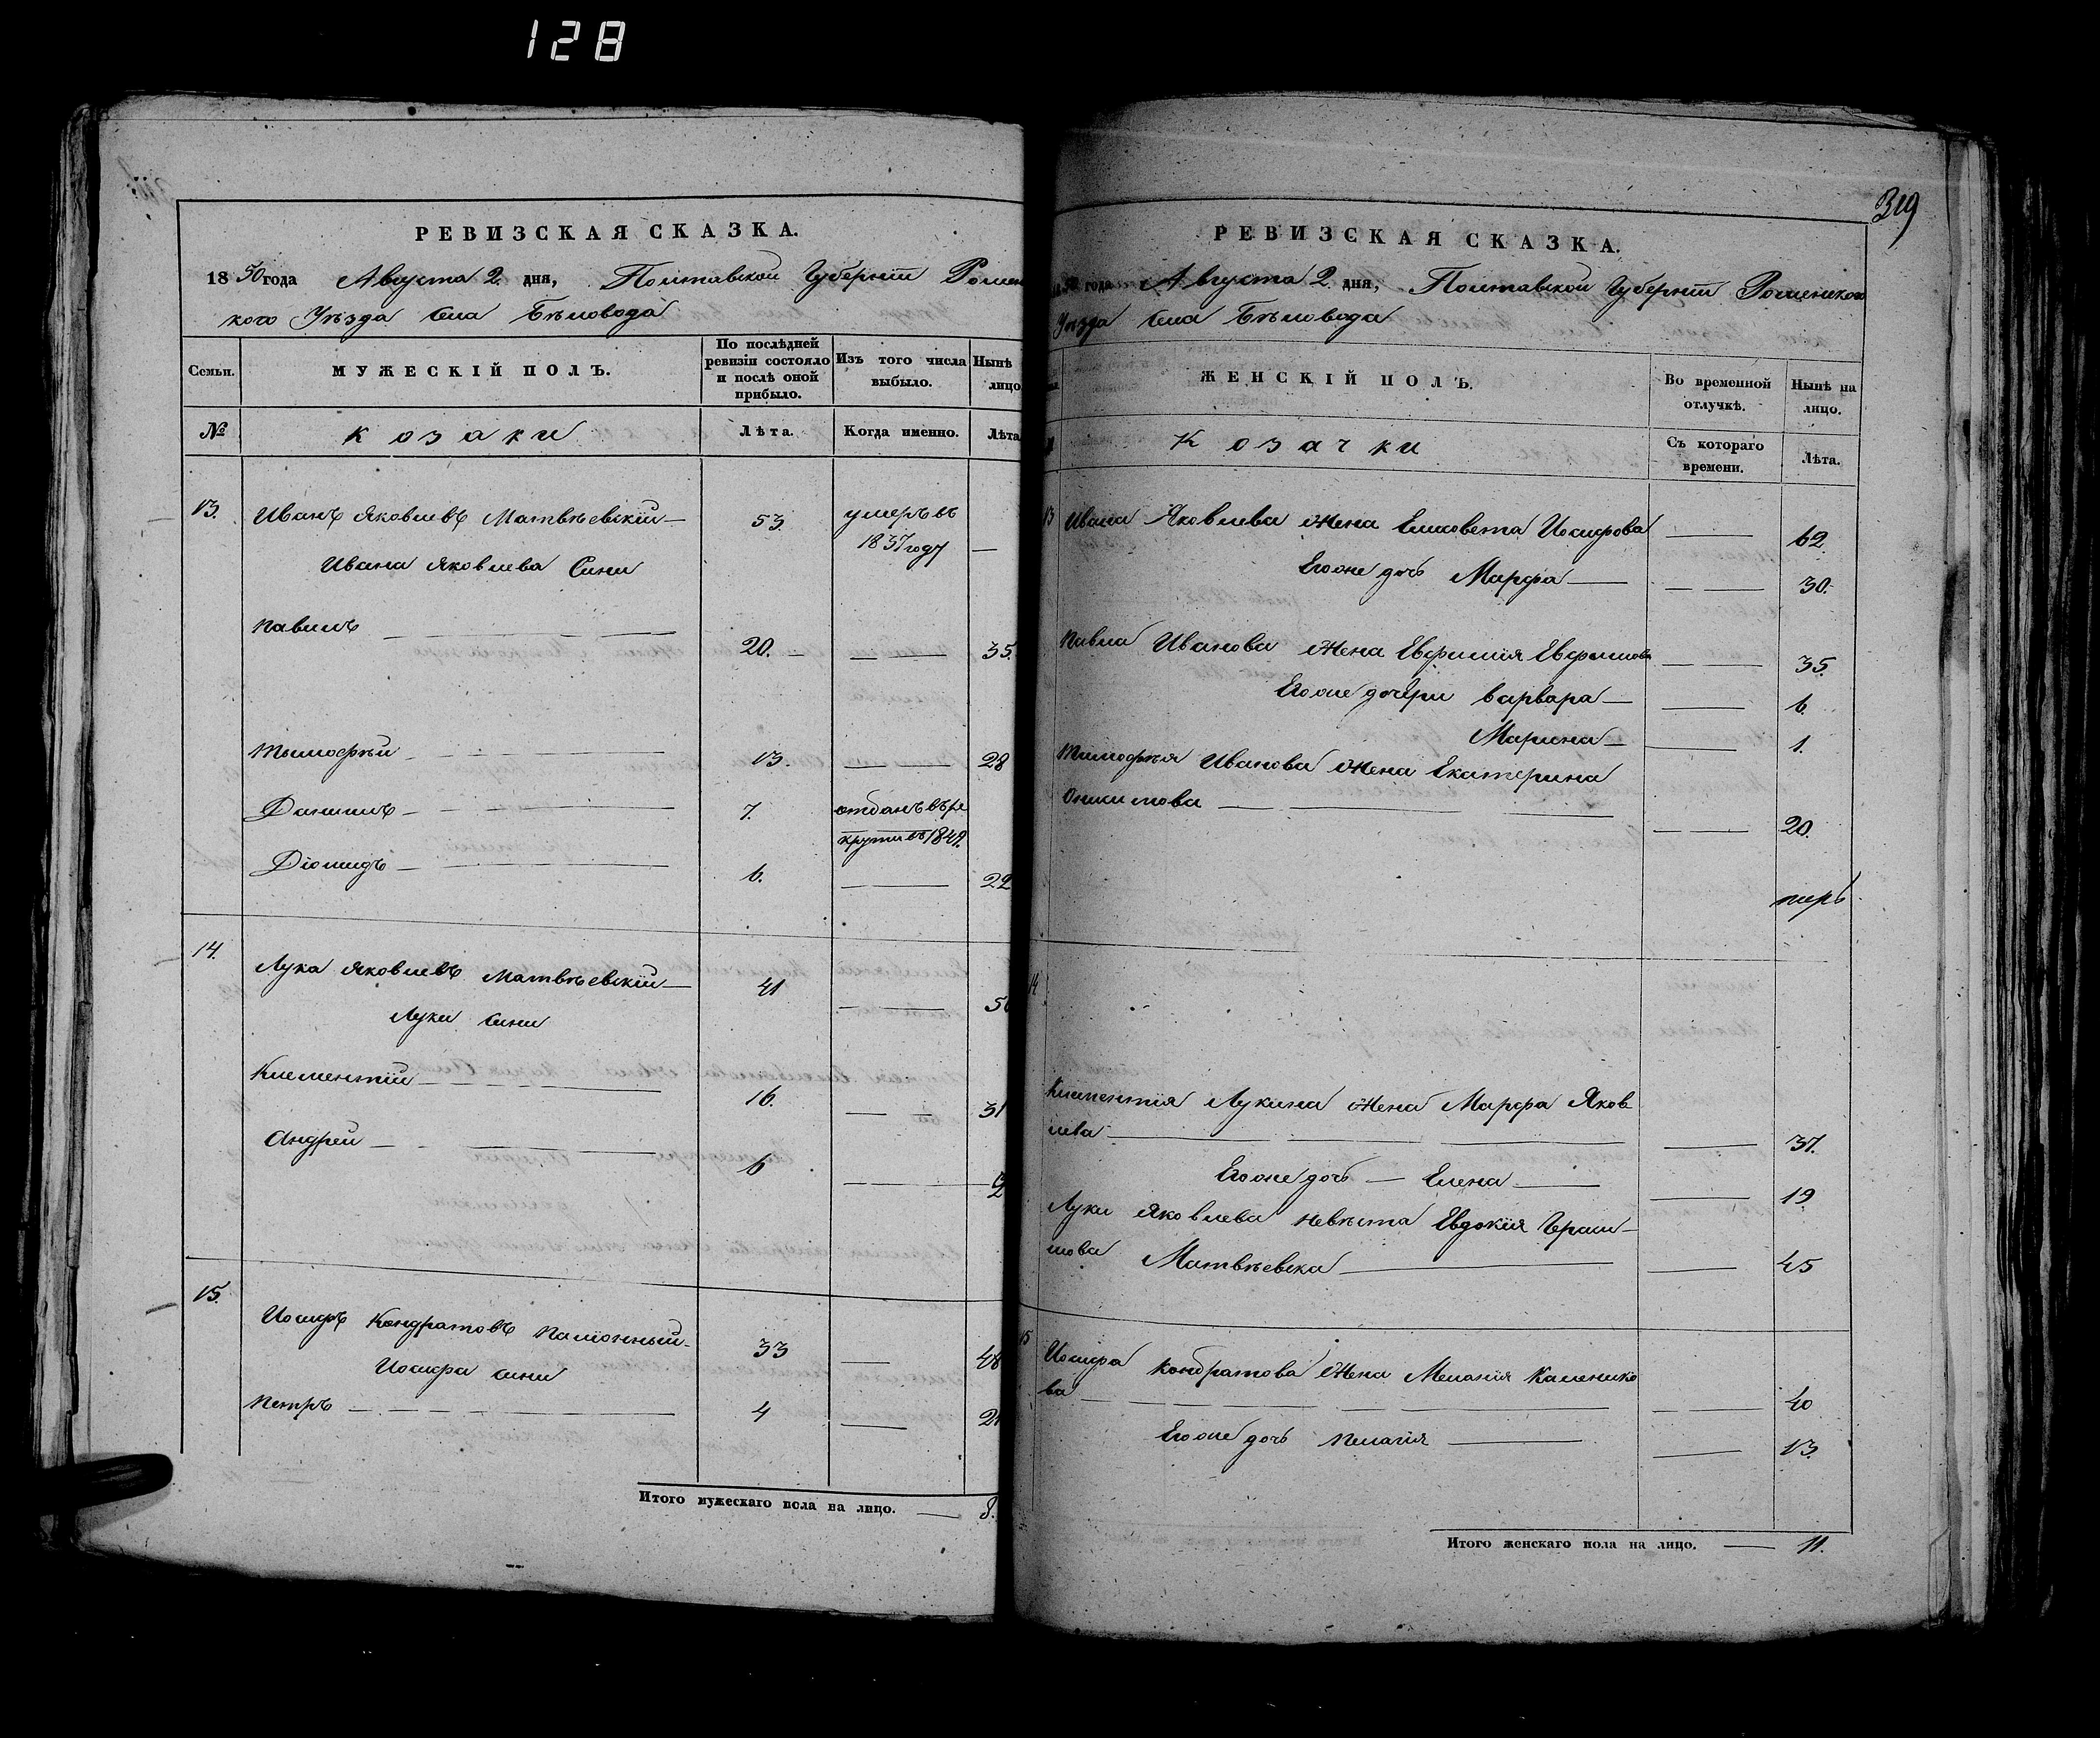 128
РЕВИЗСКАЯ СКАЗКА.
1850 года Августа 2 дня, Полтавской Губерніи Ромен
кого Уѣзда Села Бѣловода
Семьи. МУЖЕСКІЙ ПОЛЪ. По послѣдней ревизіи состояло и послѣ оной прибыло. Изъ того числа выбыло. Нынѣ лицо
№ козаки Лѣта. Когда именно. Лѣта
13. Иванъ Яковлевъ Матвѣевскій — 53 умеръ въ 1837 году —
Ивана Яковлева Сини
Павелъ — — — 20. — — — 35.
Тымофѣй — — — 13. — — 28
Данилъ — — — 7. отданъ въ ре крути въ 1849.
Діомидъ — — — 6. — — 22
14. Лука Яковлевъ Матвѣевскій — 41 — —
Луки Сини
Климентій — — — 16. — — 31
Андрей — — — 6 — —
15. Иосифъ Кондратовъ Палюнный 33 — 48
Иосифа Сини
Петръ — — — — 4 — 21
Итого мужескаго пола на лицо. — 8.
319
РЕВИЗСКАЯ СКАЗКА.
года Августа 2 дня, Полтавской Губерніи Роменского
Уѣзда Села Бѣловода
ЖЕНСКІЙ ПОЛЪ. Во временной отлучкѣ. Нынѣ на лицо.
Козачки Съ котораго времени. Лѣта.
13 Ивана Яковлева Жена Елисовета Иосифова — 62.
Егоже дочь Марфа — — — 30.
Павла Иванова Жена Евфимія Евфимова — — 35.
Егоже дочери Варвара — — 6.
Марина — — 1.
Тимофѣя Иванова Жена Екатерина
Оникитова — — — — — 20.
14
Климентія Лукина Жена Марфа Яков
лева — — — — 37.
Егоже дочь — Елена — — 19
Луки Яковлева невѣста Евдокія Гераси-
мова Матвѣевска — — 45
15 Иосифа Кондратова Жена Меланія Каленико
ва — — — — — 40
Егоже дочь Пелагія — — 13.
Итого женскаго пола на лицо. — 11.